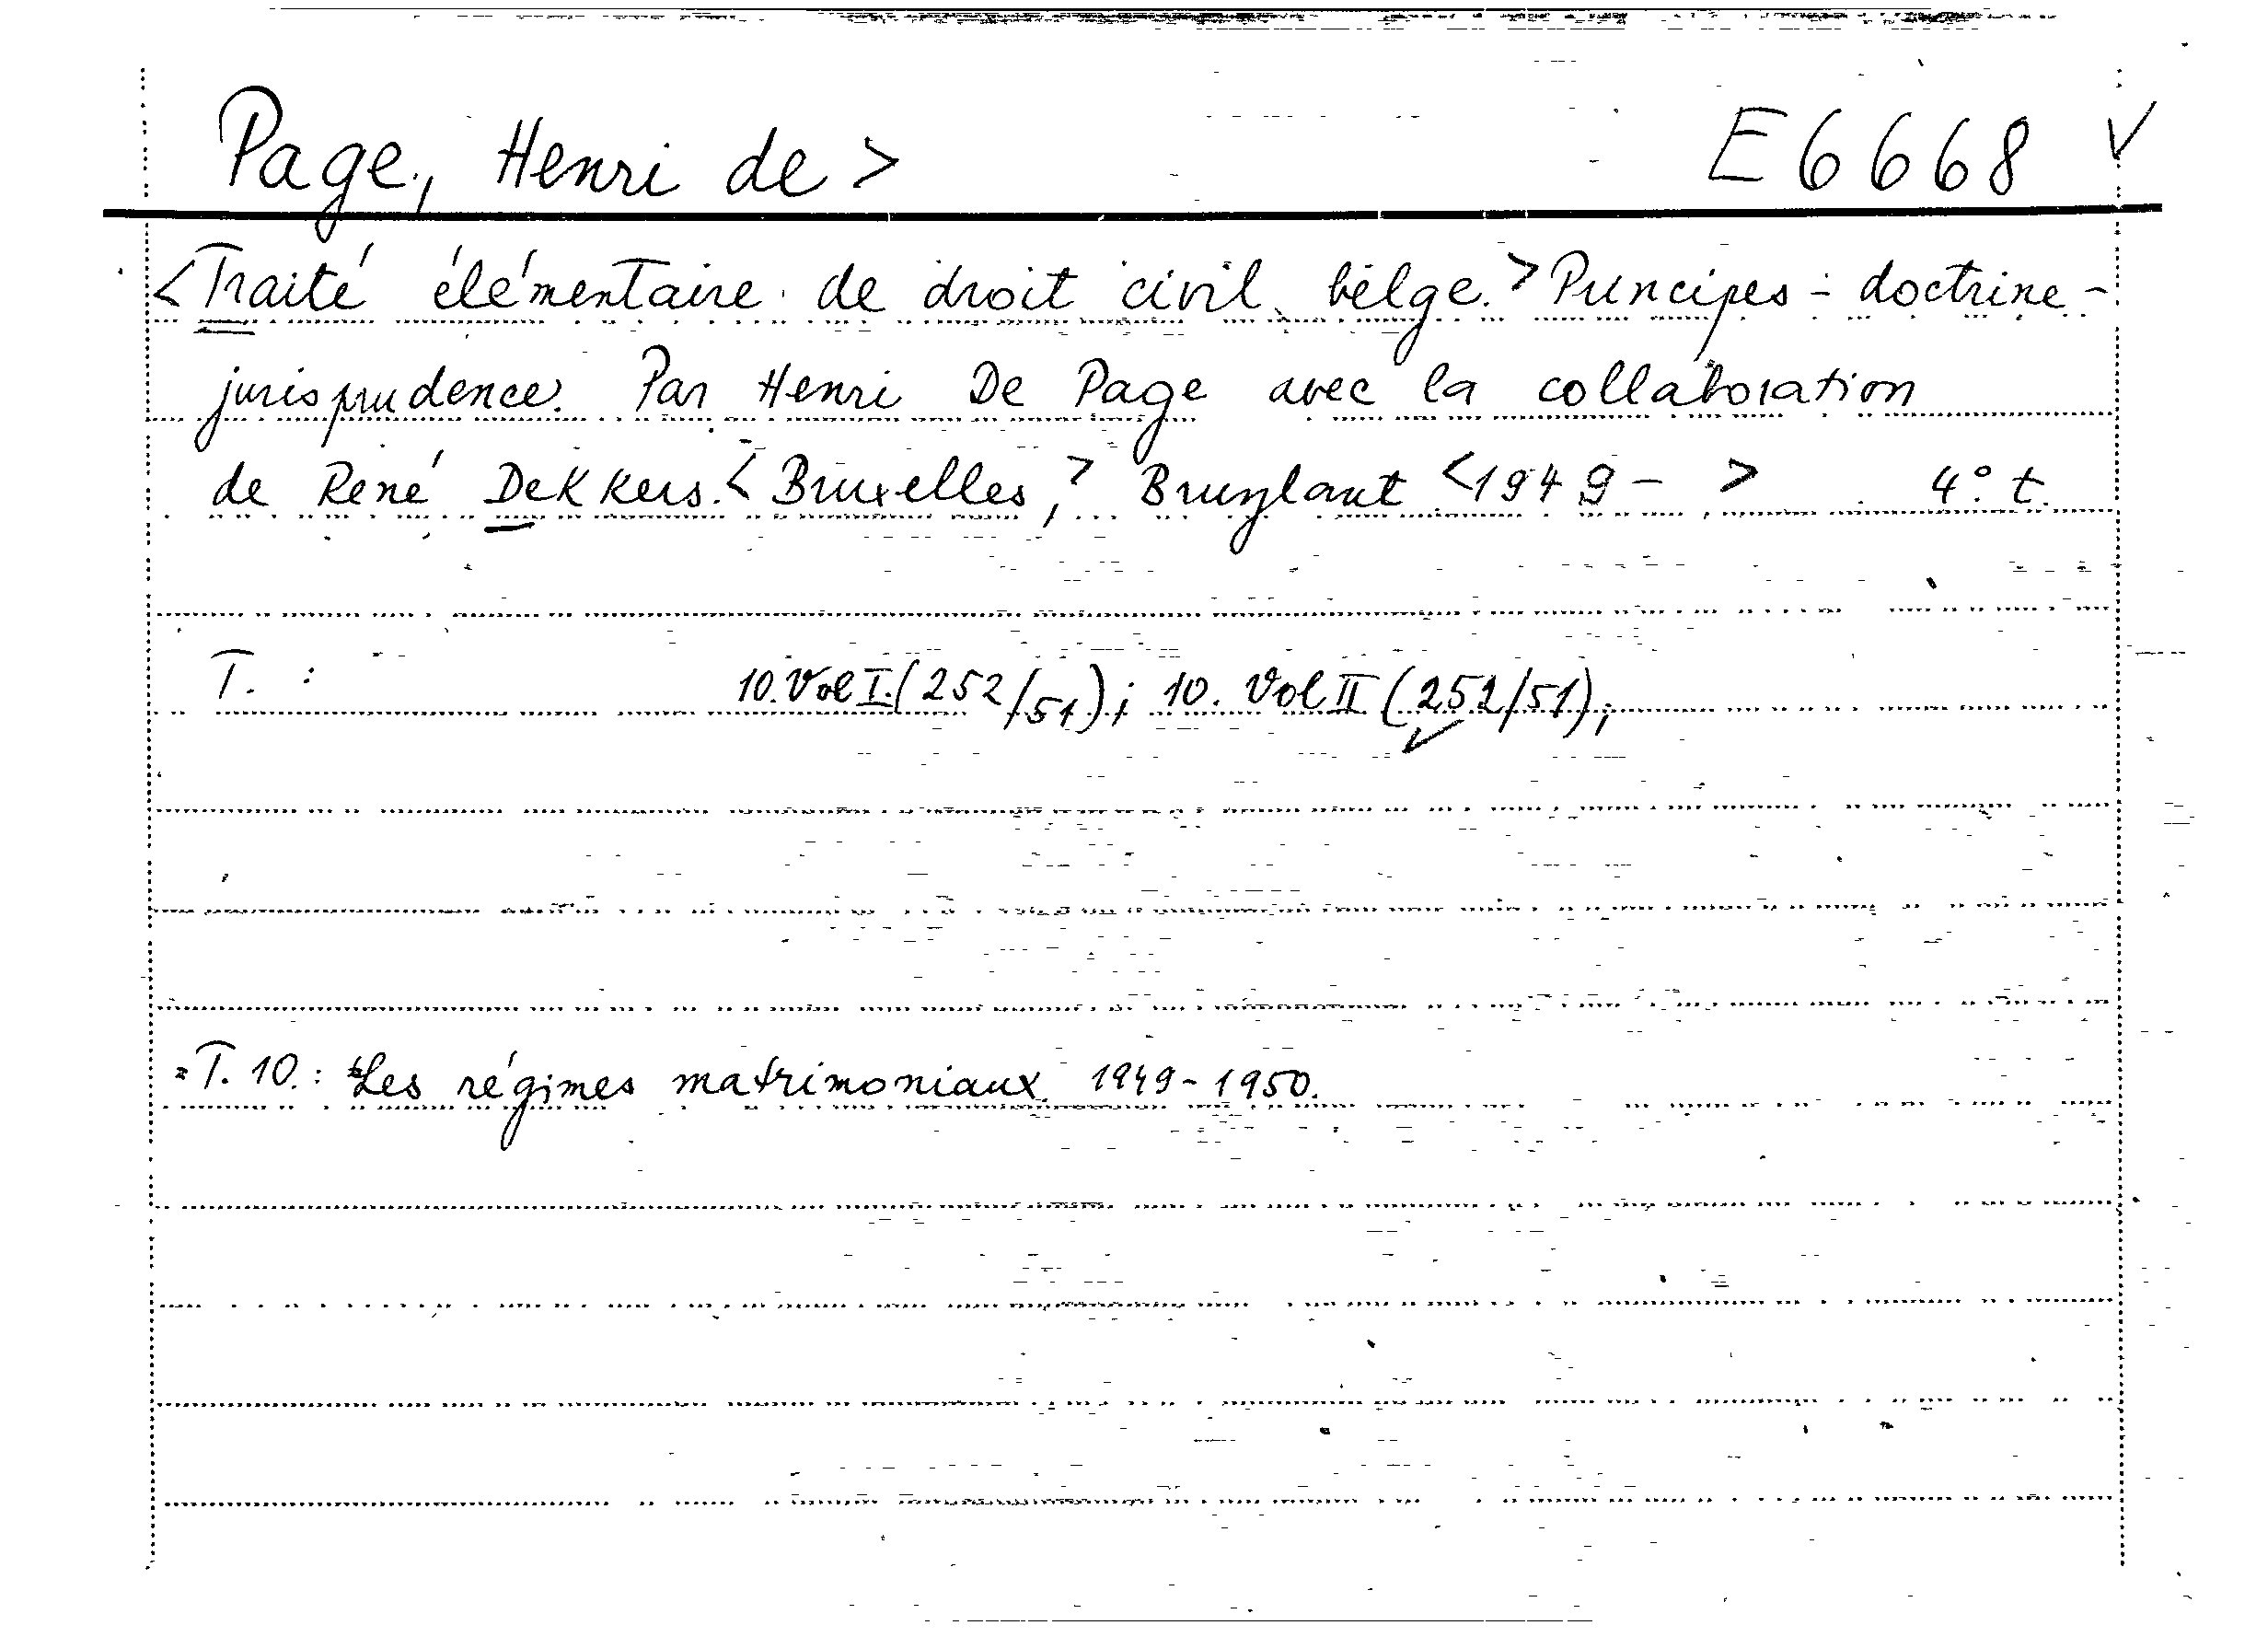 Page, Henri de > E6668 ✓
<Traité élémentaire de droit civil belge.> Principes - doctrine -
jurisprudence. Par Henri De Page avec la collaboration
de René Dekkers. <Bruxelles,> Bruylant <1949 - > 4° t.
T. : 10. Vol I. (252/51); 10. Vol II (252/51);
✓
=T. 10.: Les régimes matrimoniaux. 1949-1950.